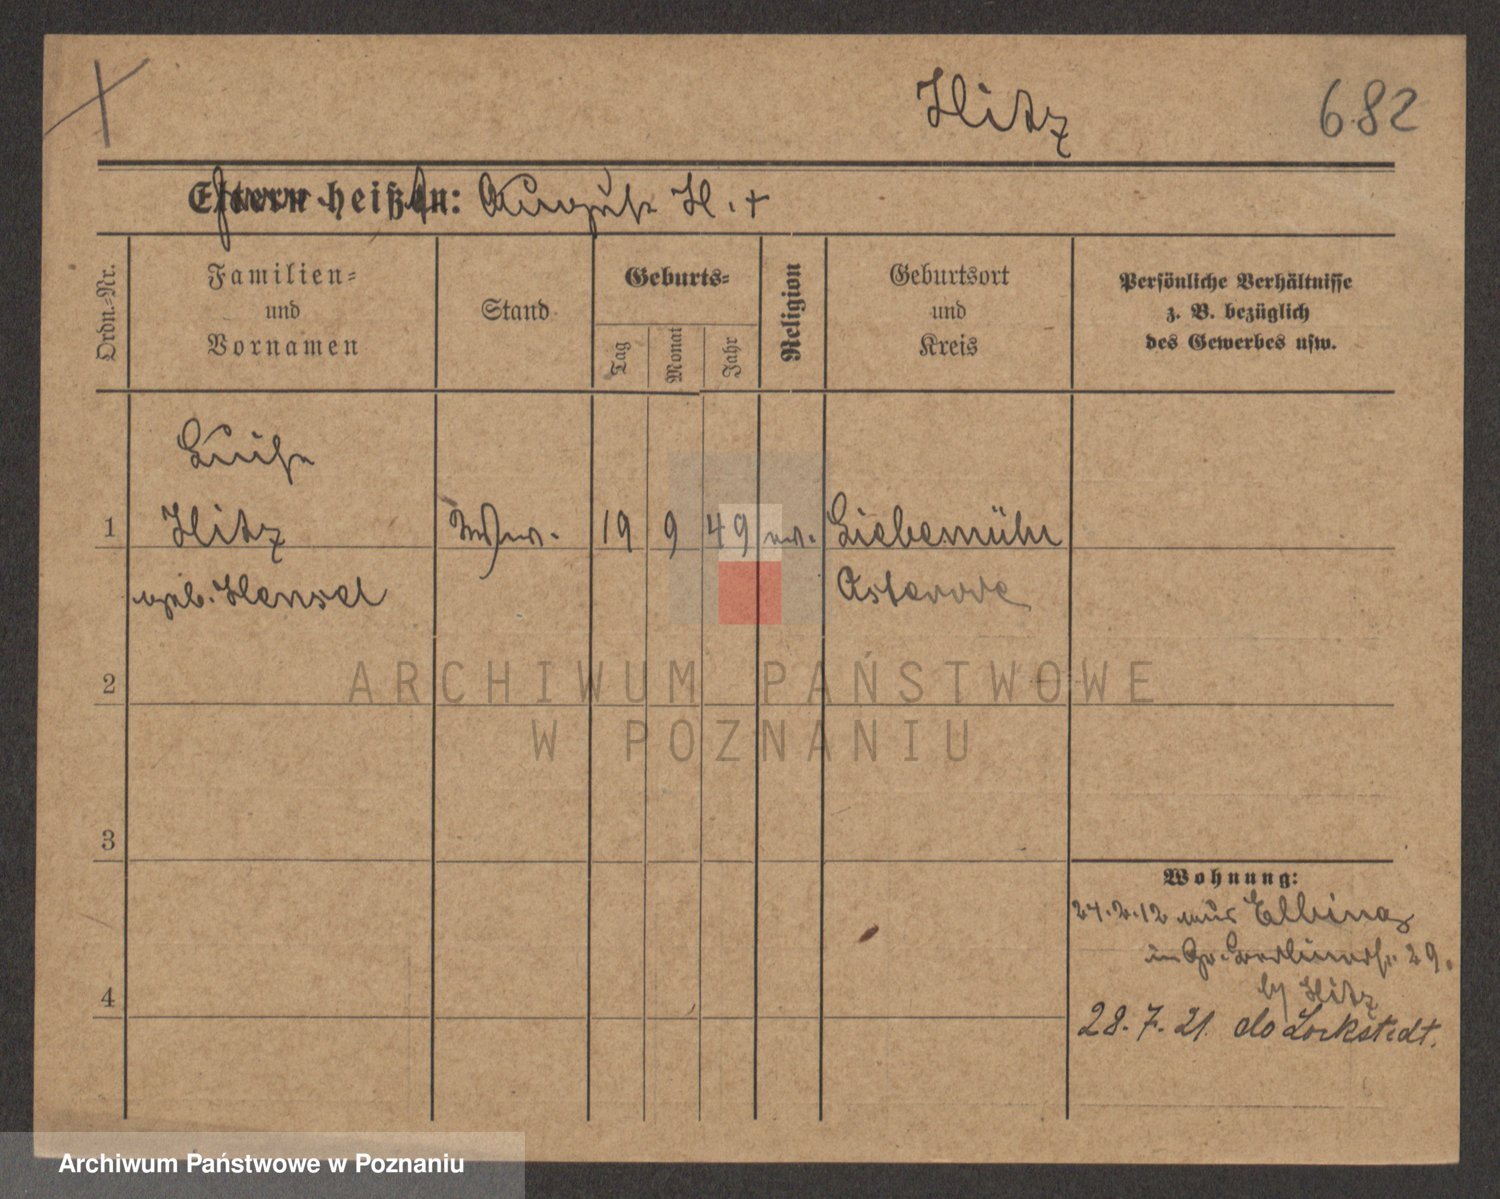 Hitz 682
Eltern heißen: August H. +
Ordn.-Nr.
Familien-
und
Vornamen
Stand
Geburts-
Tag
Monat
Jahr
Religion
Geburtsort
und
Kreis
Persönliche Verhältnisse
z. B. bezüglich
des Gewerbes usw.
Luise
1 Hitz Ww. 19 9 49 ev. Liebemühl
geb. Hensel Osterode
2
3
4
Wohnung:
24.2.12 aus Elbing
29.
b/ Hitz
28.7.21. do Lockstedt.
ARCHIWUM PAŃSTWOWE
W POZNANIU
Archiwum Państwowe w Poznaniu